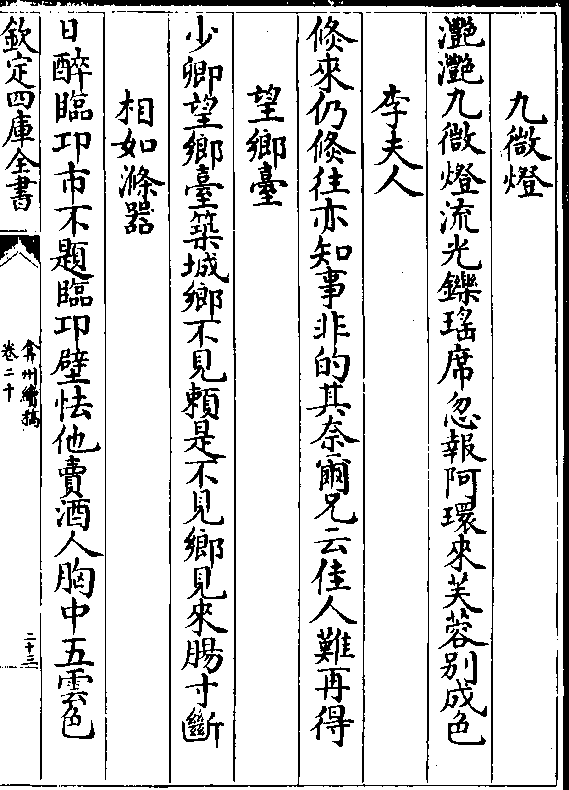 九微燈
灧灧九微燈流光鑠瑤席忽報阿環來芙蓉別成色
李夫人
倐來仍倐往亦知事非的其奈爾兄云佳人難再得
望鄉臺
少卿望鄉臺築城鄉不見頼是不見鄉見來腸寸斷
相如滌器
日醉臨卭市不題臨卭壁怯他賣酒人胸中五雲色
欽定四庫全書
弇州續稿
卷二十
二十三